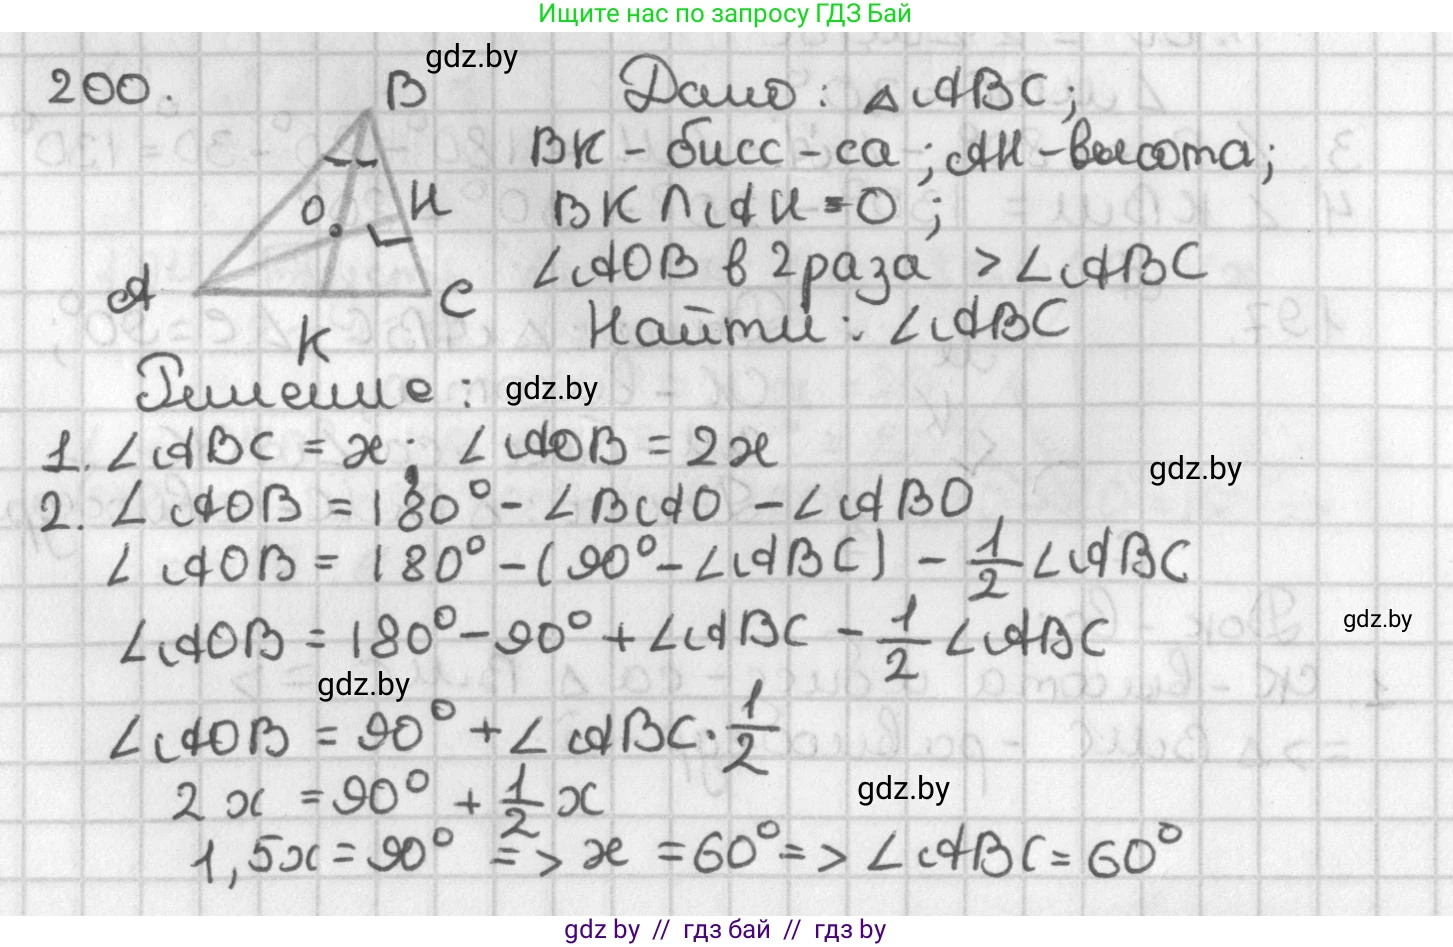 Ищите нас по запросу ГДЗ Бай
gdz.by
200.
B
O
H
A
K
C
Дано: △ABC;
BK - бисс-са; AH - высота;
BK ∩ AH = O;
∠AOB в 2 раза > ∠ABC
Найти: ∠ABC
Решение:
gdz.by
1. ∠ABC = x; ∠AOB = 2x
gdz.by
2. ∠AOB = 180° - ∠BAO - ∠ABO
∠AOB = 180° - (90° - ∠ABC) - 1/2 ∠ABC
gdz.by
∠AOB = 180° - 90° + ∠ABC - 1/2 ∠ABC
gdz.by
∠AOB = 90° + ∠ABC · 1/2
2x = 90° + 1/2 x
gdz.by
1,5x = 90° => x = 60° => ∠ABC = 60°
gdz by // гдз бай // гдз by